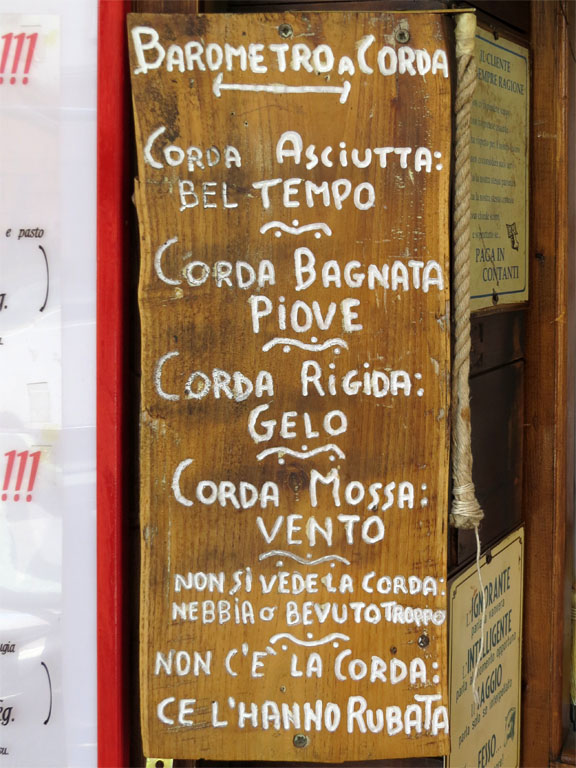 BAROMETRO A CORDA
CORDA ASCIUTTA:
BEL TEMPO
CORDA BAGNATA
PIOVE
CORDA RIGIDA:
GELO
CORDA MOSSA:
VENTO
NON SI VEDE LA CORDA:
NEBBIA O BEVUTO TROPPO
NON C'E' LA CORDA:
CE L'HANNO RUBATA
!!!
e pasto
g.
!!!
eg.
IL CLIENTE
SEMPRE RAGIONE
PAGA IN
CONTANTI
L'IGNORANTE
INTELLIGENTE
SAGGIO
parla solo se interpellato
FESSO